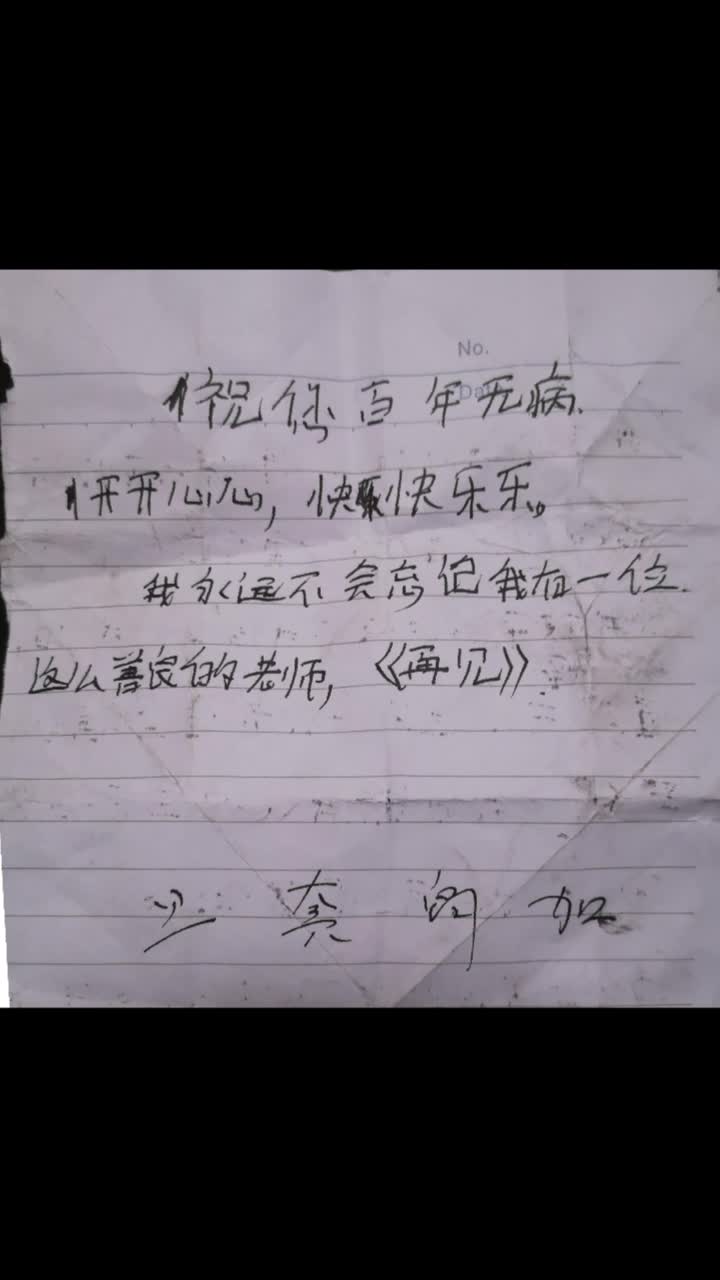 No.
Da
祝你百年无病.
开开心心,快快乐乐。
我永远不会忘记我有一位.
这么善良的老师,《再见》